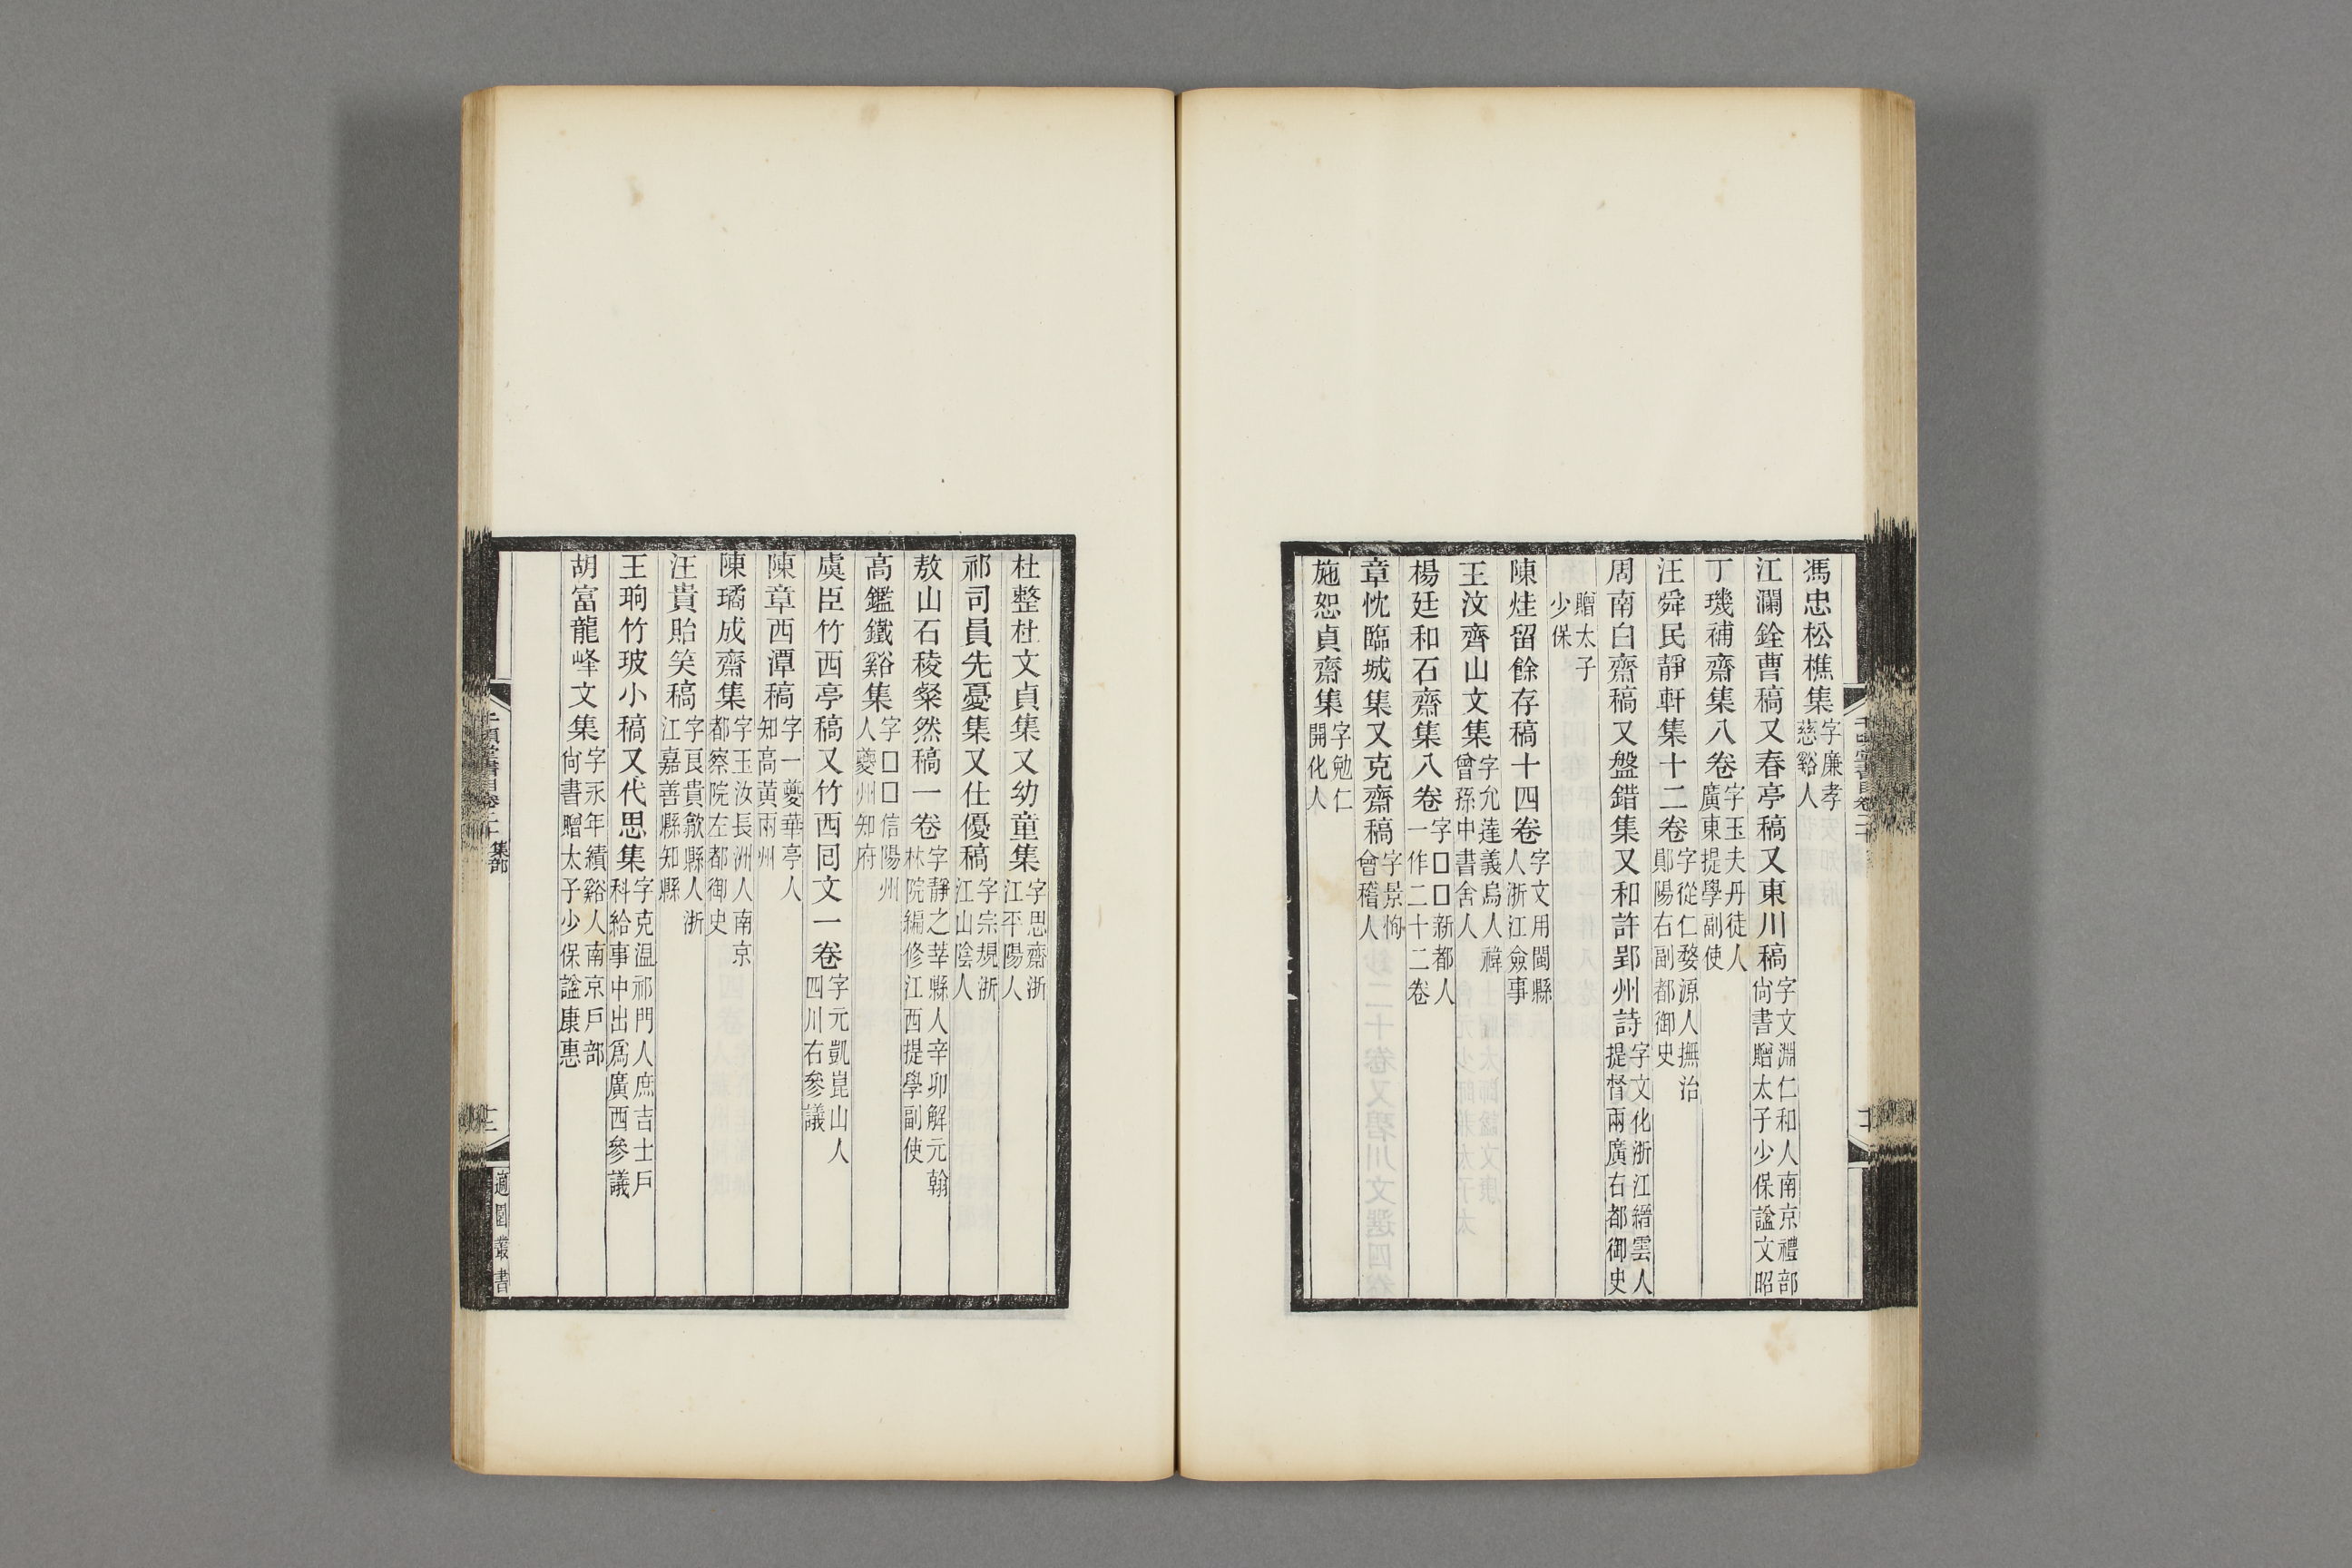 馮忠松樵集字廉孝慈谿人
江瀾銓曹稿又春亭稿又東川稿字文淵仁和人南京禮部尙書贈太子少保諡文昭
丁璣補齋集八卷字玉夫丹徒人廣東提學副使
汪舜民靜軒集十二卷字從仁婺源人撫治鄖陽右副都御史
周南白齋稿又盤錯集又和許郢州詩字文化浙江縉雲人提督兩廣右都御史
贈太子少保
陳烓留餘存稿十四卷字文用閩縣人浙江僉事
王汶齊山文集字允達義烏人禕曾孫中書舍人
楊廷和石齋集八卷字□□新都人一作二十二卷
章忱臨城集又克齋稿字景恂會稽人
施恕貞齋集字勉仁開化人
杜整杜文貞集又幼童集字思齋浙江平陽人
祁司員先憂集又仕優稿字宗規浙江山陰人
敖山石稜粲然稿一卷字靜之莘縣人辛卯解元翰林院編修江西提學副使
高鑑鐵谿集字□□信陽州人夔州知府
虞臣竹西亭稿又竹西同文一卷字元凱崑山人四川右參議
陳章西潭稿字一夔華亭人知高黃兩州
陳璚成齋集字玉汝長洲人南京都察院左都御史
汪貴貽笑稿字良貴歙縣人浙江嘉善縣知縣
王珦竹玻小稿又代思集字克溫祁門人庶吉士戶科給事中出爲廣西參議
胡富龍峰文集字永年績谿人南京戶部尙書贈太子少保諡康惠
集部
適園叢書